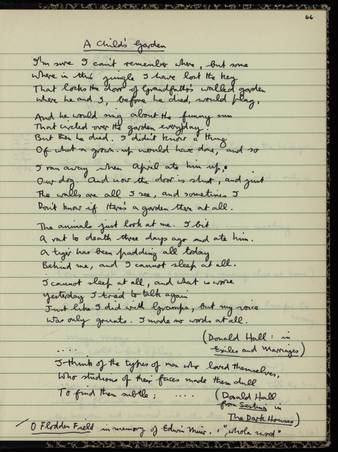 66
A Child's Garden
I'm sure I can't remember where, but some
Where in this jungle I have lost the key
That locks the door of Grandfather's walled garden
Where he and I, before he died, would play.
And he would sing about the funny sun
That circled over the garden everyday.
But then he died. I didn't know a thing
Of what a grown-up would have done, and so
I ran away when April ate him up,
Our dog. And now the door is shut, and just
The walls are all I see, and sometimes I
Don't know if there's a garden there at all.
The animals just look at me. I bit
A rat to death three days ago and ate him.
A tiger has been padding all today
Behind me, and I cannot sleep at all.
I cannot sleep at all, and what is worse
Yesterday I tried to talk again
Just like I did with Grampa, but my voice
Was only grunts. I made no words at all.
(Donald Hall: in
Exiles and Marriages)
....
I think of the types of men who loved themselves,
Who studious of their faces made them dull
To find them subtle; ..... (Donald Hall
from in
The Dark Houses)
O Flodden Field in memory of Edwin Muir,